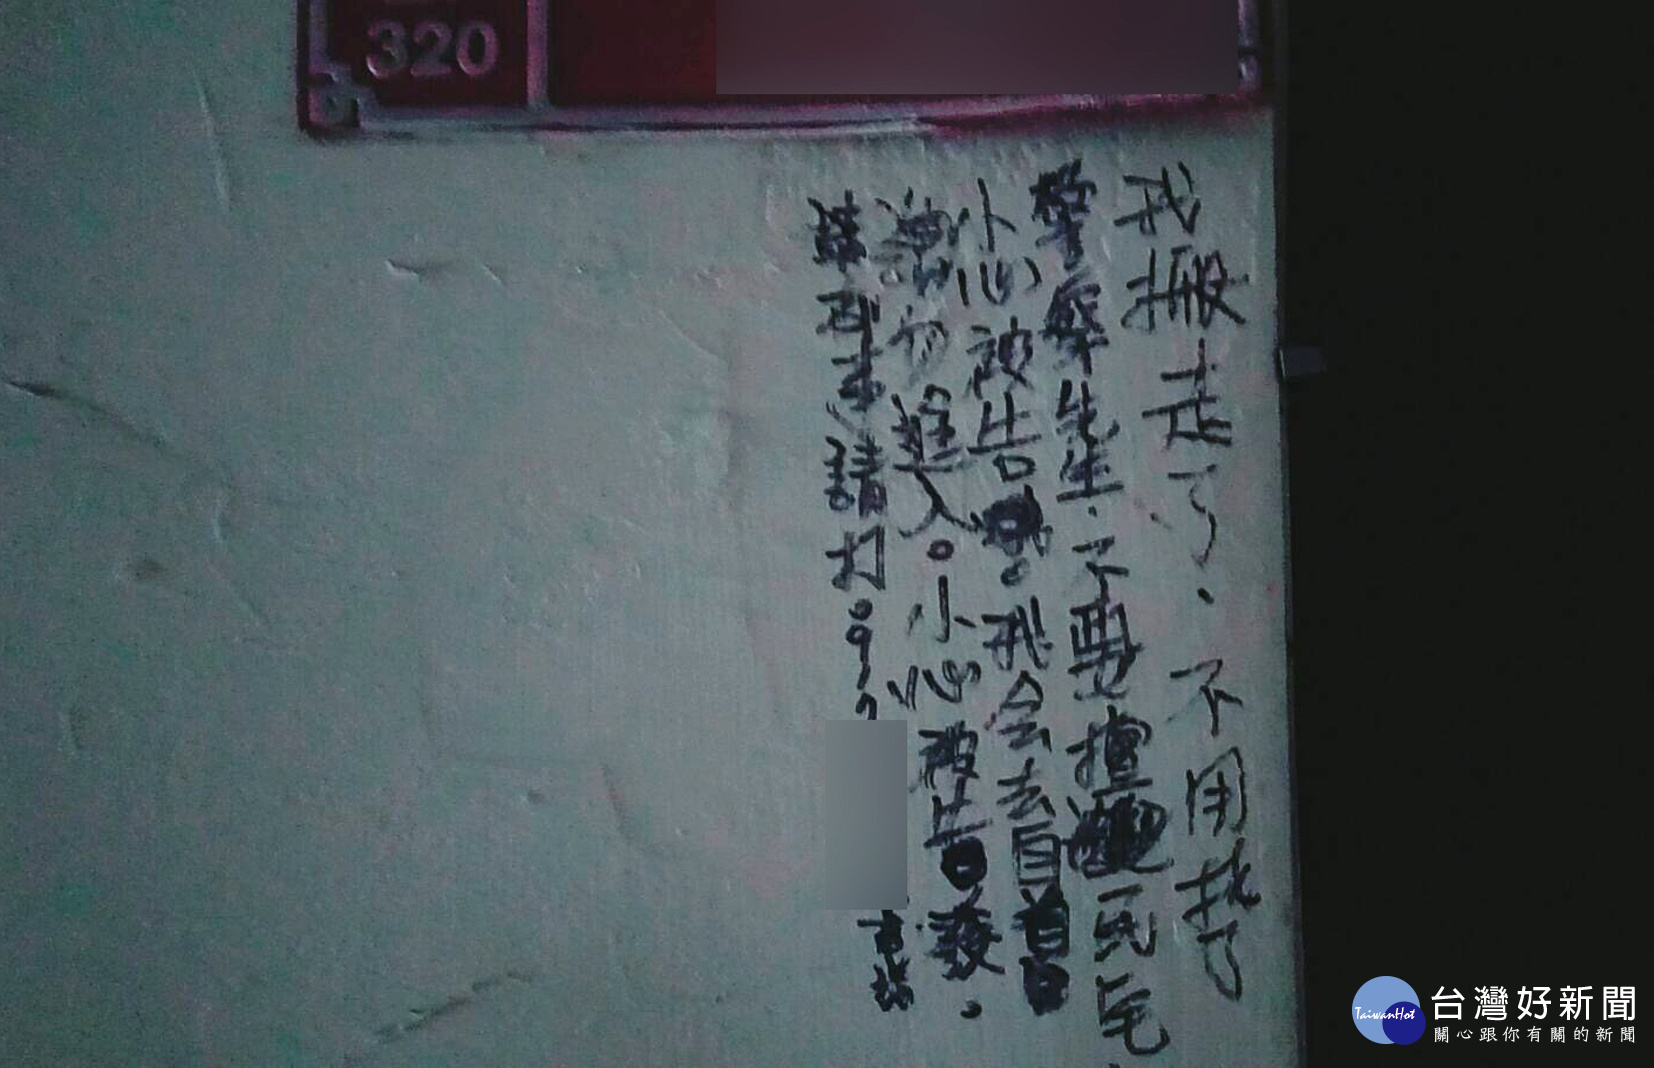 320
我搬走了.不用找了
警察先生.不要擅闖民宅.
小心被告。我会去自首
請勿進入。小心被告發.
請打09
台灣好新聞
TaiwanHot
關心跟你有關的新聞